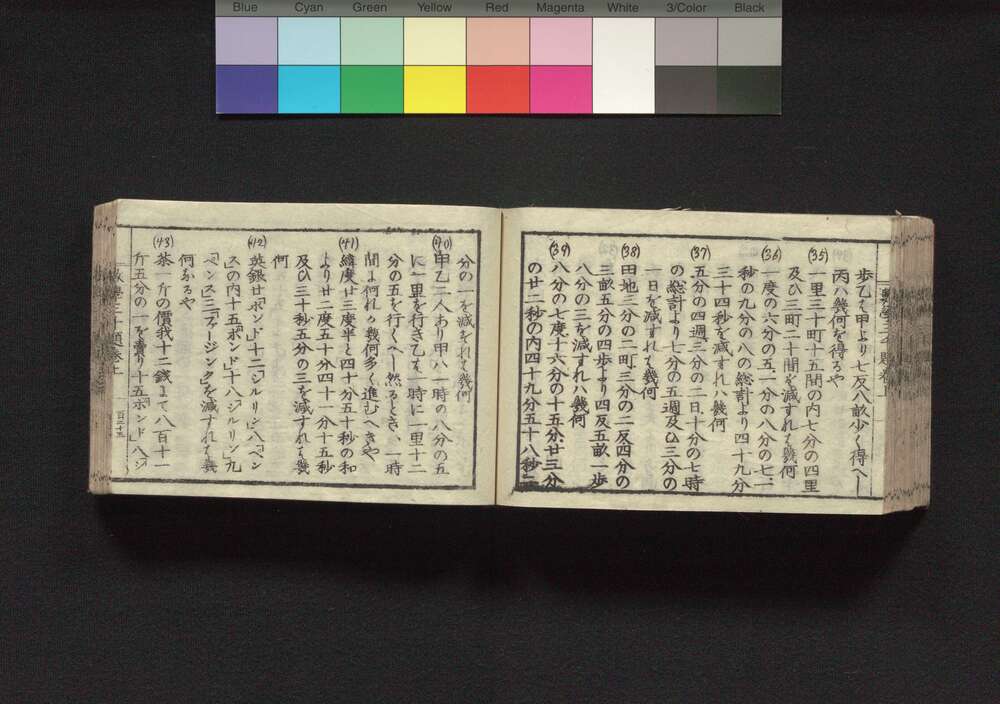 Blue Cyan Green Yellow Red Magenta White 3/Color Black
歩乙ハ甲より七反八畝少く得へし
丙ハ幾何を得るや
(35)
一里三十町十五間の内七分の四里
及ひ三町二十間を減すれハ幾何
(36)
一度の六分の五、一分の八分の七、一
秒の九分の八の総計より四十九分
三十四秒を減すれハ幾何
(37)
五分の四週、三分の二日、十分の七時
の総計より七分の五週及ひ三分の
一日を減すれハ幾何
(38)
田地三分の二町、三分の二反四分の
三畝五分の四歩より四反五畝一歩
八分の三を減すれハ幾何
(39)
八分の七度十六分の十五分、廿三分
の廿二秒の内四十九分五十八秒二
分の一を減すれハ幾何
(40)
甲乙二人あり甲ハ一時の八分の五
に一里を行き乙ハ一時に一里十二
分の五を行くへし然るときハ一時
間に何れか幾何多く進むへきや
(41)
緯度廿二度半と四十八分五十秒の和
より廿二度五十分四十一分十五秒
及ひ三十秒五分の三を減すれハ幾
何
(42)
英銀廿「ポンド」十二「シルリン」八「ペン
ス」の内十五「ポンド」十八「シルリン」九
「ペンス」三「ファージンク」を減すれハ幾
何なるや
(43)
茶一斤の價我十二銭まて八百十一
斤五分の一を賣り十五「ポンド」八「シ
数學三千題卷上
百三十五